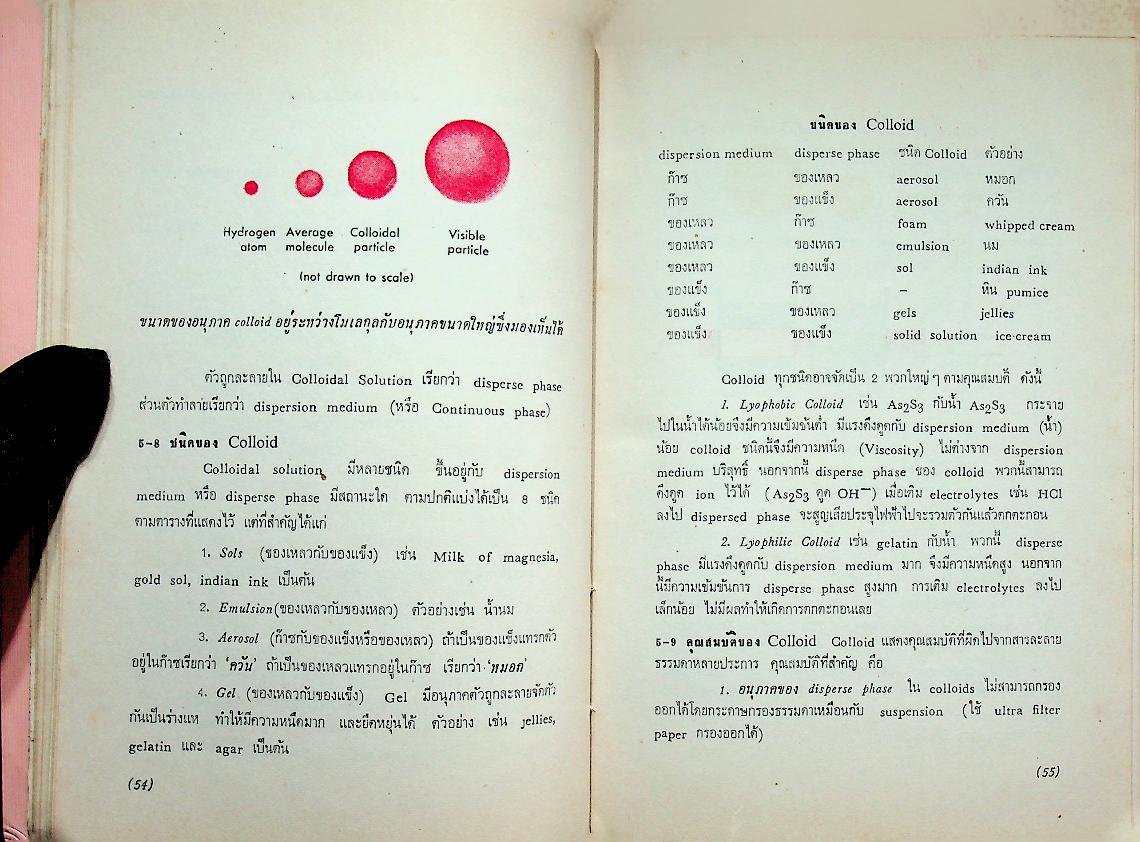 Hydrogen Average Colloidal Visible
atom molecule particle particle
(not drawn to scale)
ขนาดของอนุภาค colloid อยู่ระหว่างโมเลกุลกับอนุภาคขนาดใหญ่ซึ่งมองเห็นได้
ตัวถูกละลายใน Colloidal Solution เรียกว่า disperse phase
ส่วนตัวทำลายเรียกว่า dispersion medium (หรือ Continuous phase)
5-8 ชนิดของ Colloid
Colloidal solution มีหลายชนิด ขึ้นอยู่กับ dispersion
medium หรือ disperse phase มีสถานะใด ตามปกติแบ่งได้เป็น 8 ชนิด
ตามตารางที่แสดงไว้ แต่ที่สำคัญได้แก่
1. Sols (ของเหลวกับของแข็ง) เช่น Milk of magnesia,
gold sol, indian ink เป็นต้น
2. Emulsion (ของเหลวกับของเหลว) ตัวอย่างเช่น น้ำนม
3. Aerosol (ก๊าซกับของแข็งหรือของเหลว) ถ้าเป็นของแข็งแทรกตัว
อยู่ในก๊าซเรียกว่า 'ควัน' ถ้าเป็นของเหลวแทรกอยู่ในก๊าซ เรียกว่า 'หมอก'
4. Gel (ของเหลวกับของแข็ง) Gel มีอนุภาคตัวถูกละลายจัดตัว
กันเป็นร่างแห ทำให้มีความหนืดมาก และยืดหยุ่นได้ ตัวอย่าง เช่น jellies,
gelatin และ agar เป็นต้น
(54)
ชนิดของ Colloid
dispersion medium disperse phase ชนิด Colloid ตัวอย่าง
ก๊าซ ของเหลว aerosol หมอก
ก๊าซ ของแข็ง aerosol ควัน
ของเหลว ก๊าซ foam whipped cream
ของเหลว ของเหลว emulsion นม
ของเหลว ของแข็ง sol indian ink
ของแข็ง ก๊าซ – หิน pumice
ของแข็ง ของเหลว gels jellies
ของแข็ง ของแข็ง solid solution ice-cream
Colloid ทุกชนิดอาจจัดเป็น 2 พวกใหญ่ ๆ ตามคุณสมบัติ ดังนี้
1. Lyophobic Colloid เช่น As2S3 กับน้ำ As2S3 กระจาย
ไปในน้ำได้น้อยจึงมีความเข้มข้นต่ำ มีแรงดึงดูดกับ dispersion medium (น้ำ)
น้อย colloid ชนิดนี้จึงมีความหนืด (Viscosity) ไม่ต่างจาก dispersion
medium บริสุทธิ์ นอกจากนี้ disperse phase ของ colloid พวกนี้สามารถ
ดึงดูด ion ไว้ได้ (As2S3 ดูด OH⁻) เมื่อเติม electrolytes เช่น HCl
ลงไป dispersed phase จะสูญเสียประจุไฟฟ้าไปจะรวมตัวกันแล้วตกตะกอน
2. Lyophilic Colloid เช่น gelatin กับน้ำ พวกนี้ disperse
phase มีแรงดึงดูดกับ dispersion medium มาก จึงมีความหนืดสูง นอกจาก
นี้มีความเข้มข้นการ disperse phase สูงมาก การเติม electrolytes ลงไป
เล็กน้อย ไม่มีผลทำให้เกิดการตกตะกอนเลย
5-9 คุณสมบัติของ Colloid Colloid แสดงคุณสมบัติที่ผิดไปจากสารละลาย
ธรรมดาหลายประการ คุณสมบัติที่สำคัญ คือ
1. อนุภาคของ disperse phase ใน colloids ไม่สามารถกรอง
ออกได้โดยกระดาษกรองธรรมดาเหมือนกับ suspension (ใช้ ultra filter
paper กรองออกได้)
(55)